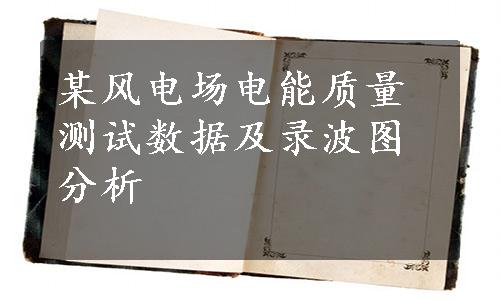 某风电场电能质量
测试数据及录波图
分析